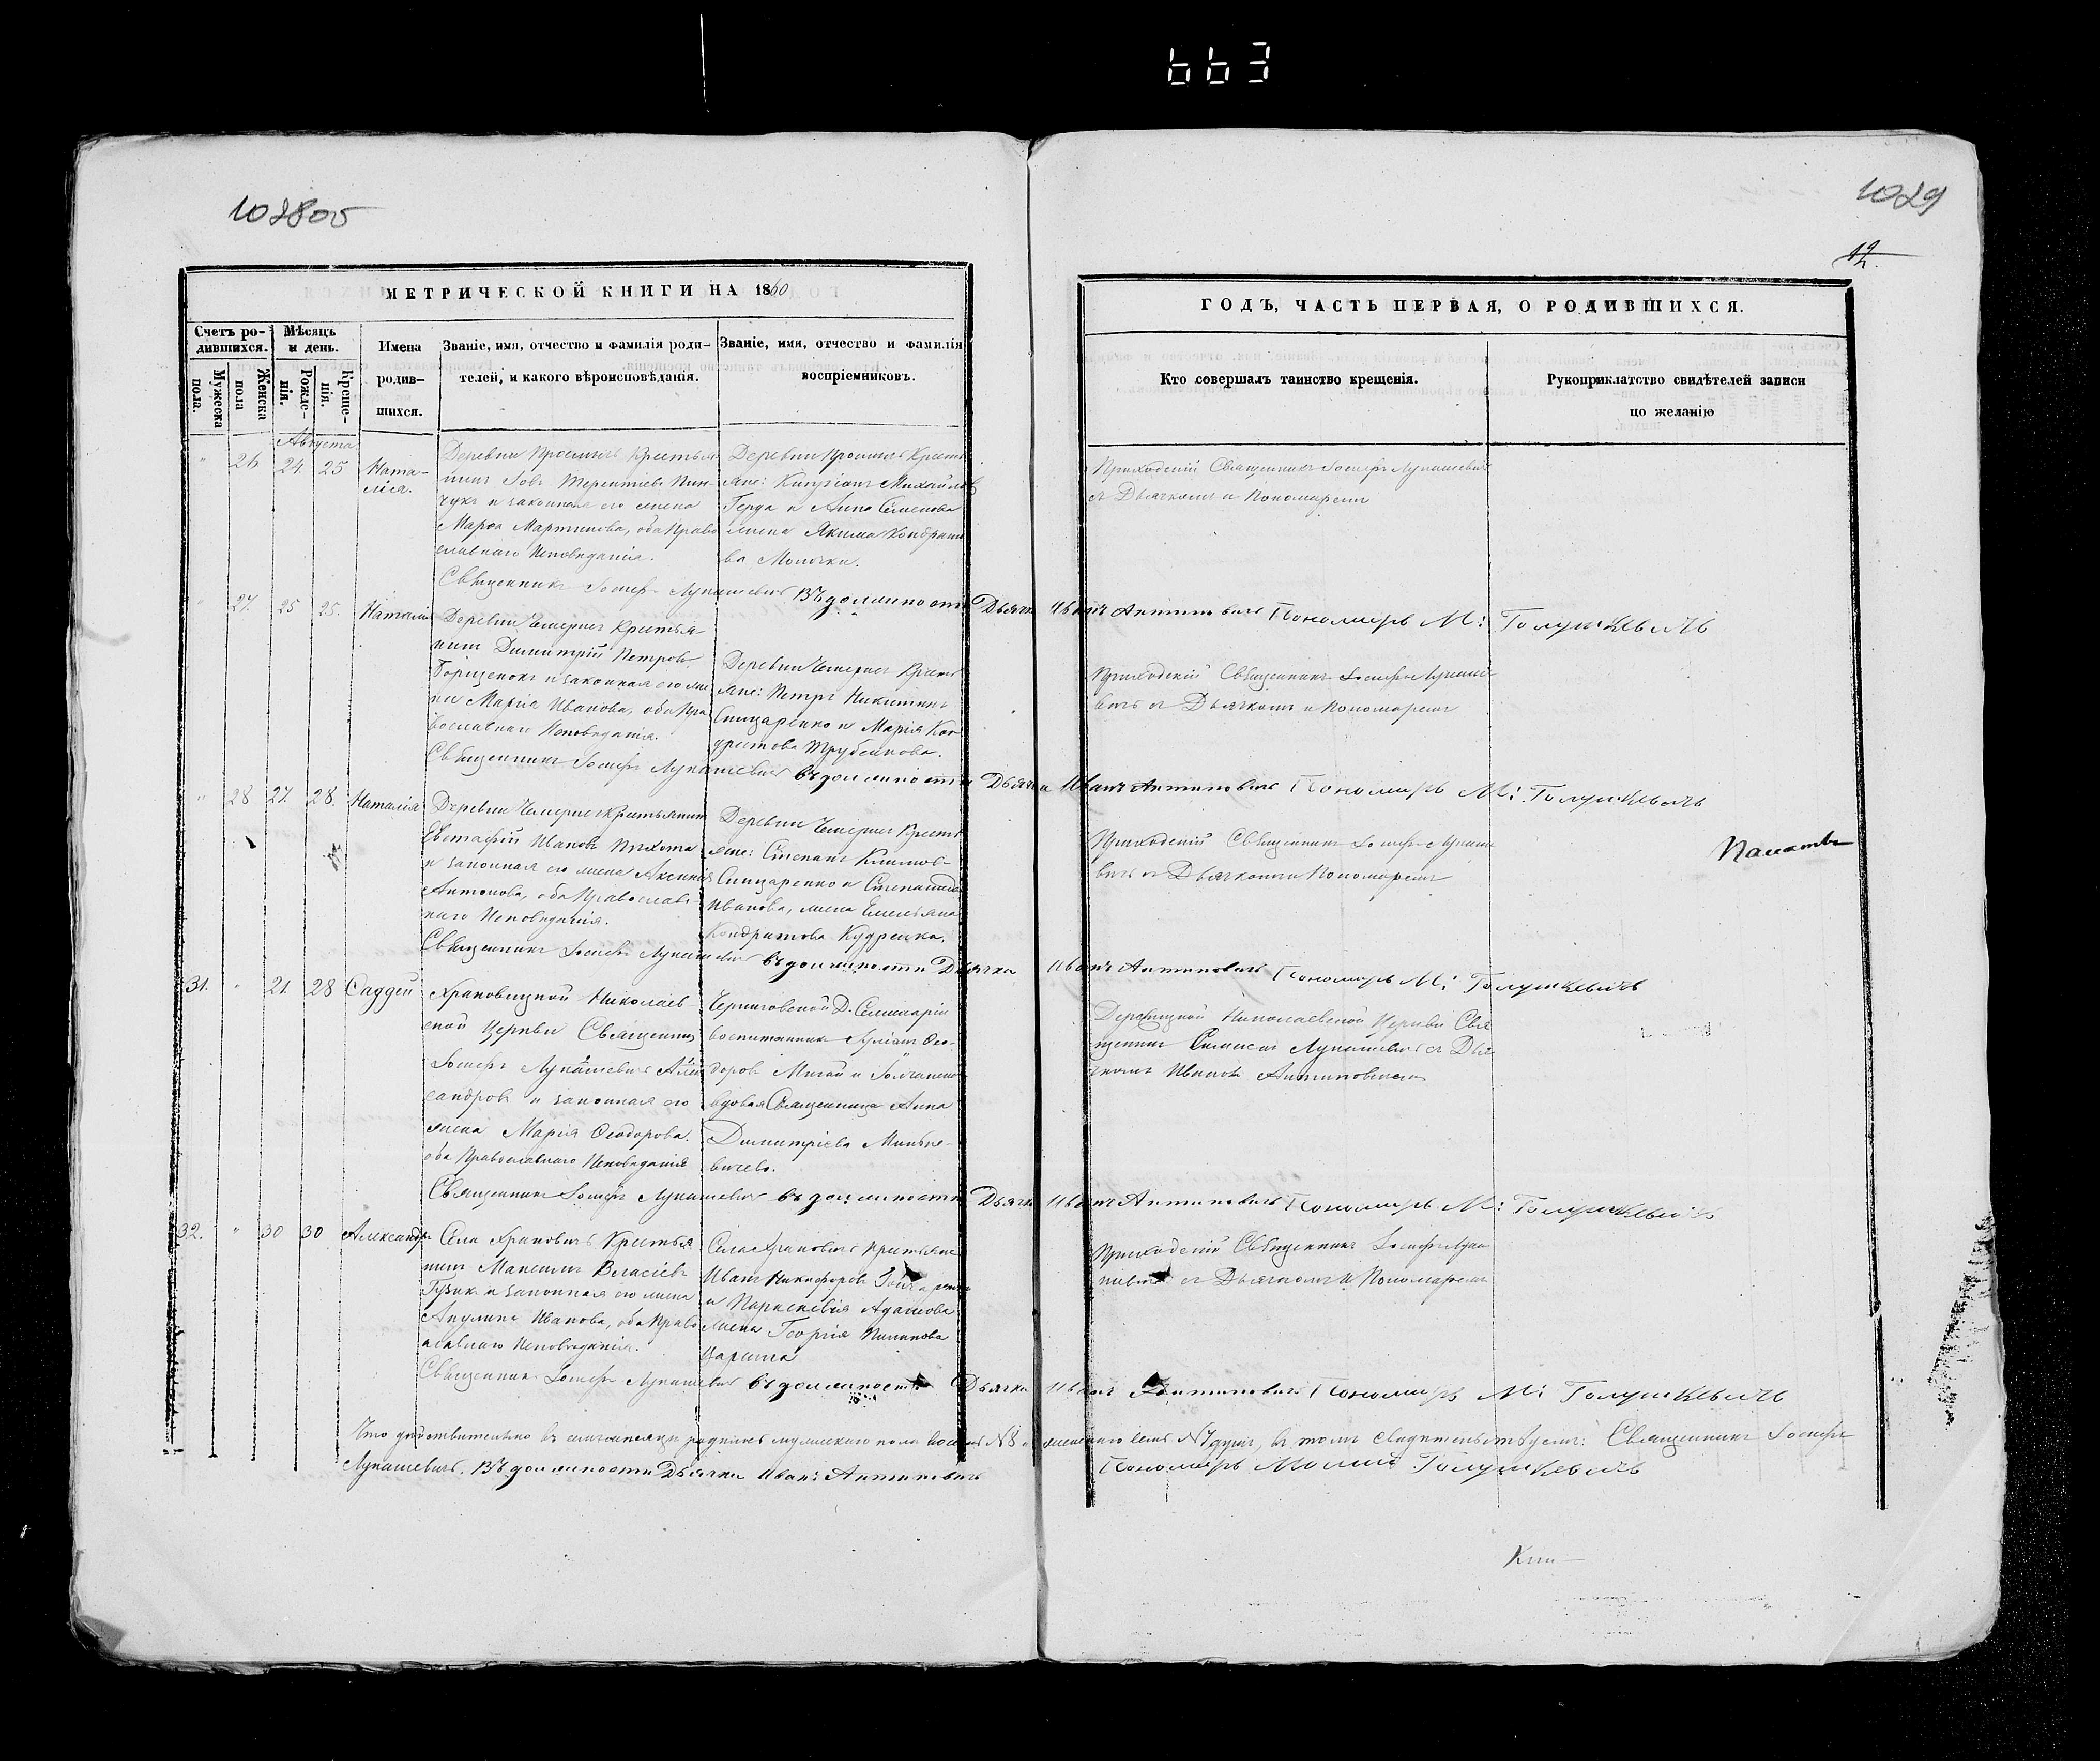 663
102805
1029
12.
МЕТРИЧЕСКОЙ КНИГИ НА 1860
ГОДЪ, ЧАСТЬ ПЕРВАЯ, О РОДИВШИХСЯ.
Счетъ ро-
дившихся.
Мужеска пола.
Женска пола
Мѣсяцъ
и день.
Рожде-
нія.
Креще-
нія.
Имена
родив-
шихся.
Званіе, имя, отчество и фамилія роди-
телей, и какого вѣроисповѣданія.
Званіе, имя, отчество и фамилія
воспріемниковъ.
Кто совершалъ таинство крещенія.
Рукоприклатство свидѣтелей записи
по желанію
Августа
" 26 24 25
Ната-
лія.
Деревни Кростья
нинъ Іовъ Терентіевъ Пин-
чукъ и законная его жена
Марѳа Мартинова, оба Право
славнаго Исповеданія.
Деревни Кресть
яне: Михайловъ
Герда и Анна Семенова
жена Якима Кондрать
ва
Приходскій Священникъ Іосифъ Лукашевичъ
съ Дьячкомъ и Пономаремъ
Священникъ Іосифъ Лукашевичъ Въ должности Дьячка Иванъ Антиповичъ Пономарь М: Голушкевичъ
" 27. 25 25.
Наталія
Деревни Чемерисъ Крестья-
нинъ Димитрій Петровъ
Борщенокъ и законная его же
на Марія Иванова, оба Пра
вославнаго Исповеданія.
Деревни Чемерисъ Кресть
яне: Петръ Никитинъ
Слицаренко и Марія Кон
дратова Трубенкова.
Приходскій Священникъ Іосифъ Лукаше-
вичъ съ Дьячкомъ и Пономаремъ
Священникъ Іосифъ Лукашевичъ въ должности Дьячка Иванъ Антиповичъ Пономарь М: Голушкевичъ
" 28 27. 28.
Наталія
Деревни Чемерисъ Крестьянинъ
Евстафій Ивановъ Пехота
и законная его жена Аксинія
Антонова, оба Православ-
наго Исповеданія.
Деревни Чемерисъ Кресть
яне: Степанъ Климовъ
Слицаренко и Степанида
Иванова, жена Емельяна
Кондратова Кудрецка.
Приходскій Священникъ Іосифъ Лукаше
вичъ съ Дьячкомъ и Пономаремъ
Священникъ Іосифъ Лукашевичъ въ должности Дьячка Иванъ Антиповичъ Пономарь М: Голушкевичъ
31. " 21. 28
Фаддей
Храповицкой Николаев
ской Церкви Священникъ
Іосифъ Лукашевичъ Алек
сандровъ и законная его
жена Марія Ѳеодорова.
оба Православнаго Исповеданія
Черниговской Д. Семинаріи
воспитанникъ Ѳео-
доровъ и
вдовая Священница Анна
Димитріева Миньке-
вичева.
Николаевской Церкви Свя
щенникъ Лукашевичъ съ Дья
чкомъ Иваномъ Антиповичемъ
Священникъ Іосифъ Лукашевичъ въ должности Дьячка Иванъ Антиповичъ Пономарь М: Голушкевичъ
32. " 30 30
Александръ
Села Храповичъ Крестья
нинъ Максимъ Власіевъ
Гузикъ и законная его жена
Акулина Иванова, оба Право
славнаго Исповеданія.
Села Храповичъ Крестьяне
Иванъ Никифоровъ
и Параскевія Адамова
жена Георгія Пилипова
Царика
Приходскій Священникъ Іосифъ Лука
шевичъ съ Дьячкомъ и Пономаремъ
Священникъ Іосифъ Лукашевичъ въ должности Дьячка Иванъ Антиповичъ Пономарь М: Голушкевичъ
Что действительно въ семъ месяце родилось мужескаго пола восемь № 8 и женскаго семь № 7 душъ, въ томъ свидетельствуемъ: Священникъ Іосифъ
Лукашевичъ. Въ должности Дьячка Иванъ Антиповичъ Пономарь Голушкевичъ